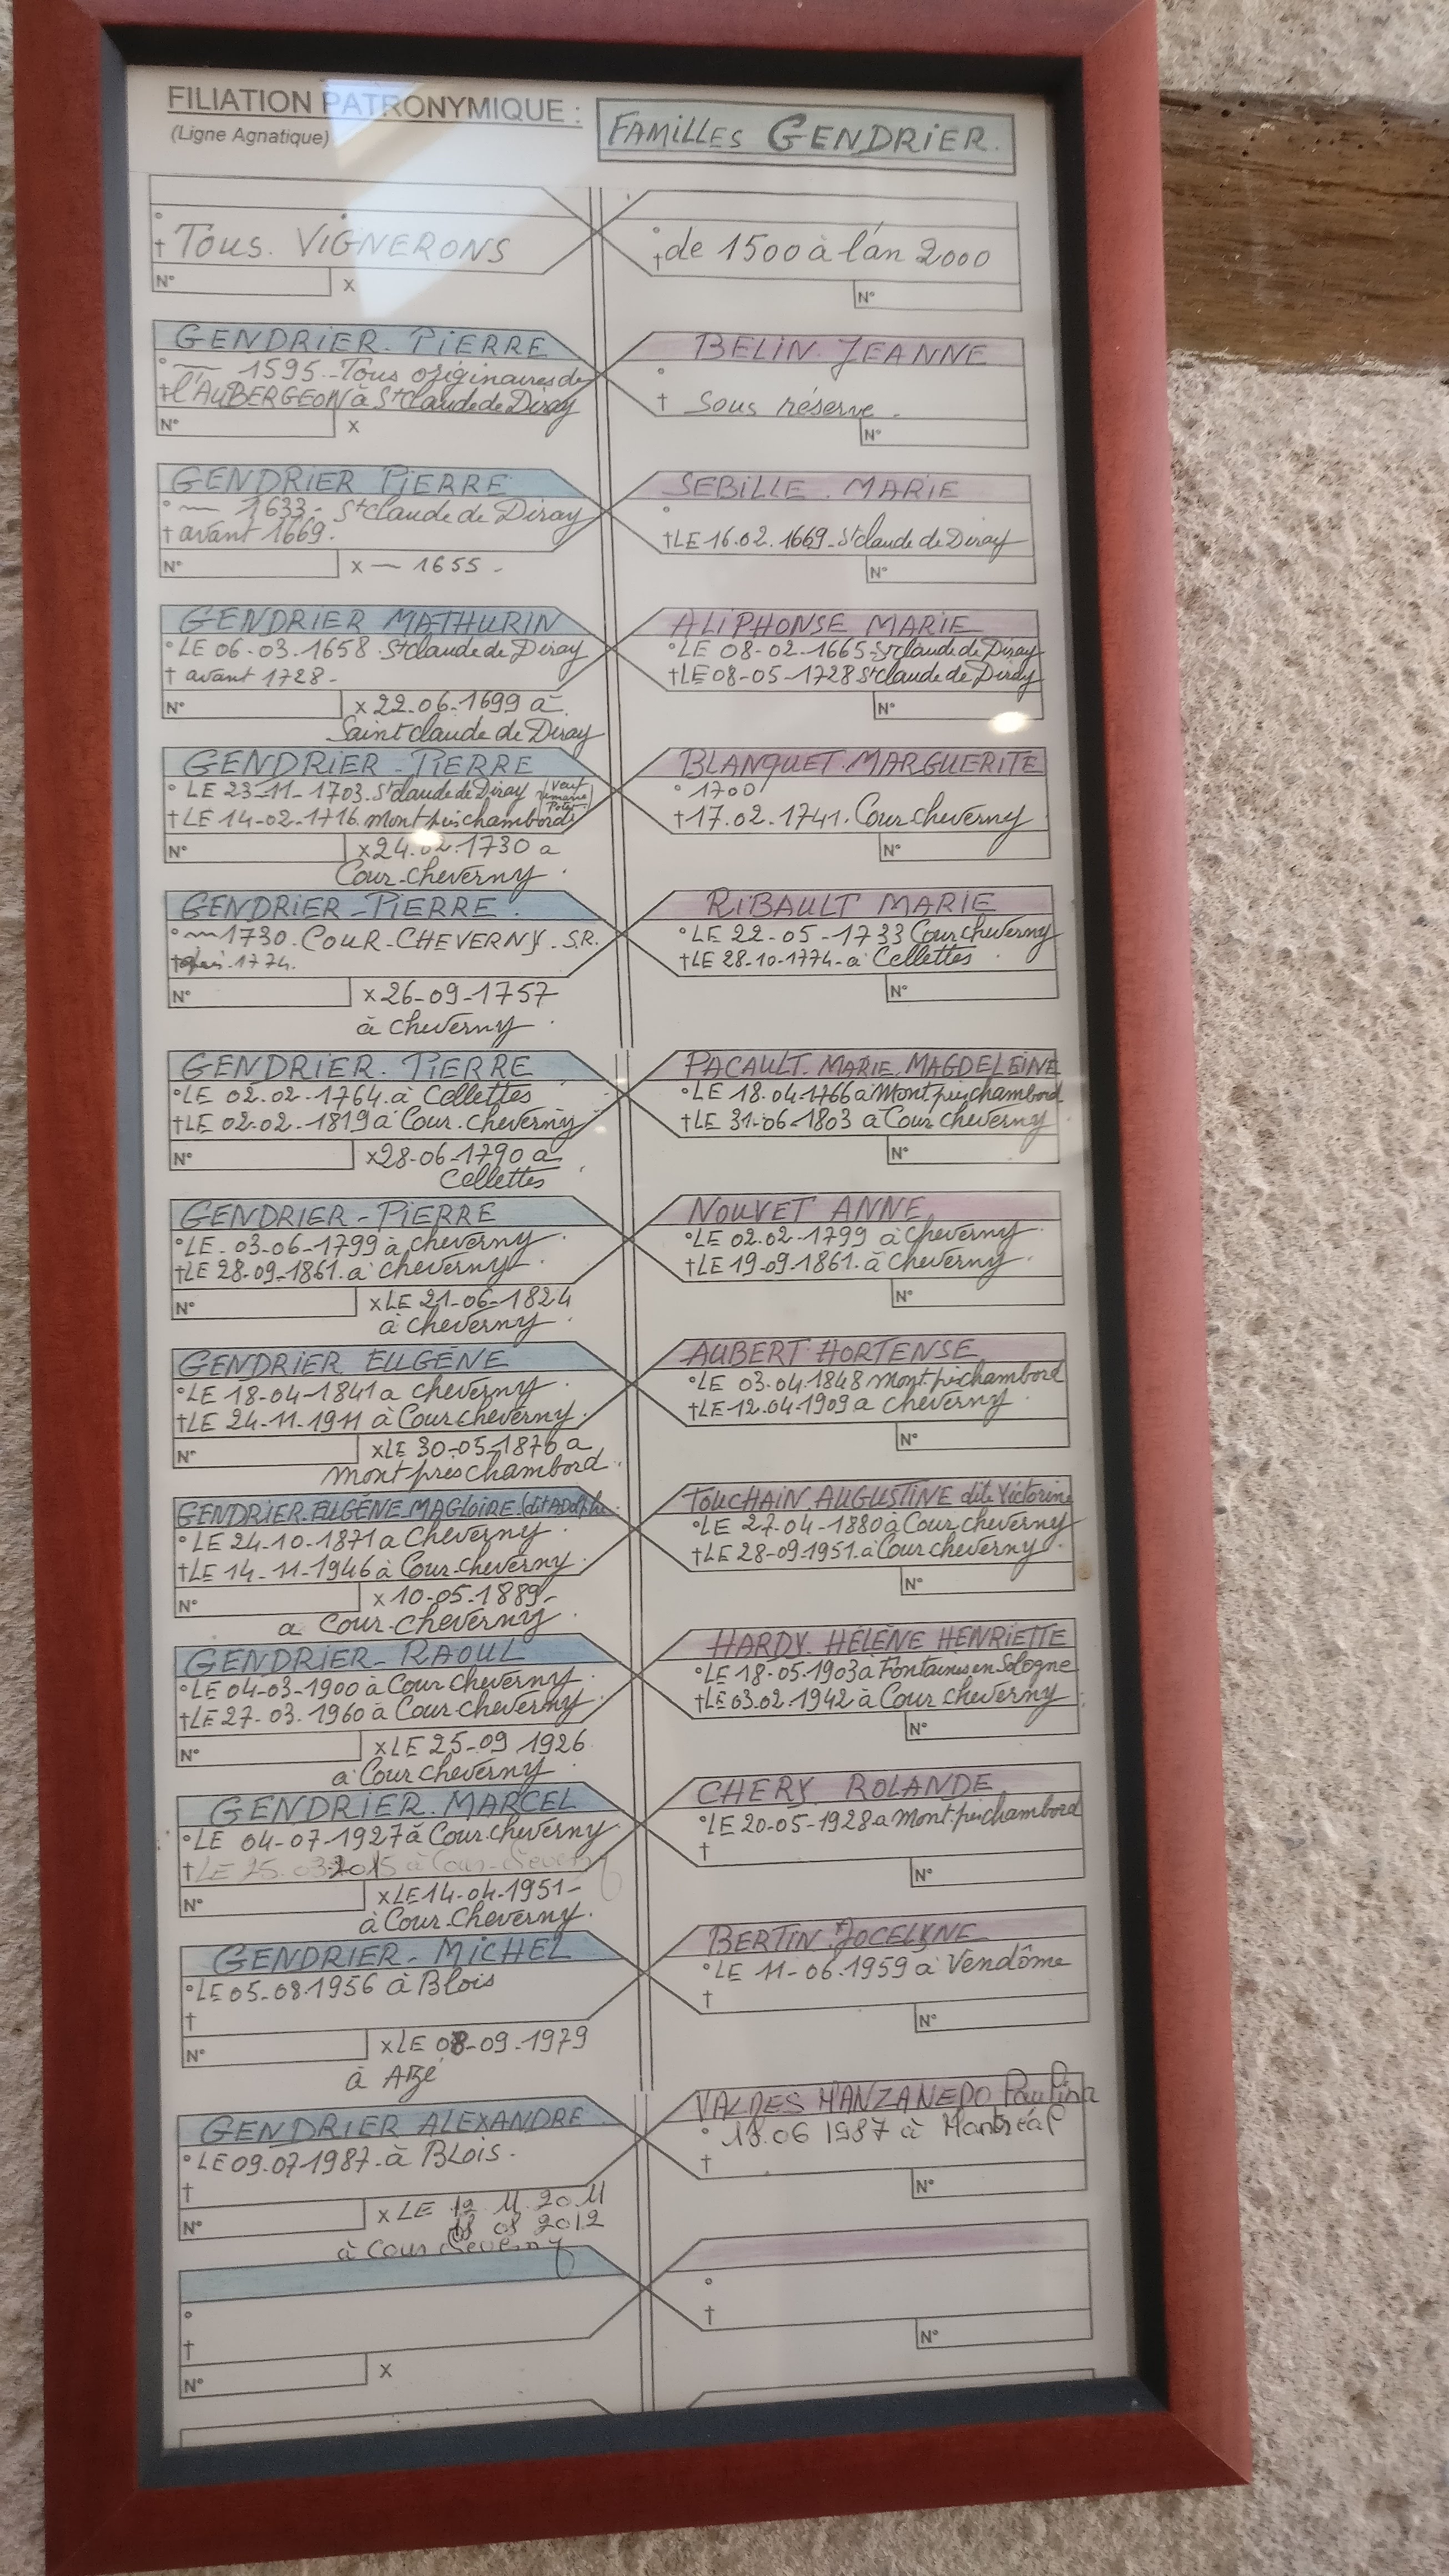 FILIATION PATRONYMIQUE :
(Ligne Agnatique)
FAMILLES GENDRIER.
° † TOUS. VIGNERONS
N° x
° † de 1500 à l'an 2000
N°
GENDRIER - PIERRE
° ~ 1595 - Tous originaires de
† l'AUBERGEON à St claude de Diray
N° x
BELIN. JEANNE
°
† Sous réserve.
N°
GENDRIER PIERRE
° ~ 1633 - St claude de Diray
† avant 1669.
N° x ~ 1655 -
SEBILLE. MARIE
°
† LE 16.02.1669 - St claude de Diray
N°
GENDRIER MATHURIN
° LE 06-03-1658 St claude de Diray
† avant 1728 -
N° x 22-06-1699 à
Saint claude de Diray
ALIPHONSE MARIE
° LE 08-02-1665 - St claude de Diray
† LE 08-05-1728 St claude de Diray
N°
GENDRIER - PIERRE
° LE 23-11-1703. St claude de Diray
† LE 14-02-1716. Mont près chambord
N° x 24.02.1730 a
Cour-cheverny
BLANQUET. MARGUERITE
° 1700
† 17.02.1741. Cour cheverny
N°
GENDRIER - PIERRE.
° ~ 1730. COUR-CHEVERNY. S.R.
† 1774.
N° x 26-09-1757
à cheverny
RIBAULT MARIE
° LE 22-05-1733 Cour cheverny
† LE 28-10-1774 - a Cellettes
N°
GENDRIER. PIERRE
° LE 02.02.1764. à Cellettes
† LE 02.02.1819 à Cour. cheverny
N° x 28-06-1790 a
Cellettes
PACAULT. MARIE. MAGDELEINE
° LE 18.04.1766 a Mont près chambord
† LE 31-06-1803 a Cour cheverny
N°
GENDRIER - PIERRE
° LE. 03-06-1799 à cheverny
† LE 28-09-1861. a cheverny
N° x LE 21-06-1824
à cheverny
NOUVET ANNE
° LE 02.02.1799 à cheverny
† LE 19-09-1861. à cheverny
N°
GENDRIER EUGÈNE
° LE 18-04-1841 a cheverny
† LE 24-11-1911 à Cour cheverny.
N° x LE 30-05-1870 a
Mont près chambord
AUBERT HORTENSE
° LE 03.04.1848 Mont près chambord
† LE 12.04.1909 a cheverny
N°
GENDRIER. EUGÈNE. MAGLOIRE. (dit ADolphe
° LE 24-10-1871 a Cheverny
† LE 14-11-1946 à Cour cheverny
N° x 10-05-1889-
a Cour-cheverny
TOUCHAIN AUGUSTINE dite Victorine
° LE 27-04-1880 à Cour cheverny
† LE 28-09-1951. à Cour cheverny
N°
GENDRIER - RAOUL
° LE 04-03-1900 à Cour cheverny
† LE 27-03.1960 à Cour-cheverny
N° x LE 25-09 1926
à Cour cheverny
HARDY. HÉLÈNE HENRIETTE
° LE 18-05-1903 à Fontaines en Sologne
† LE 03.02.1942 à Cour cheverny
N°
GENDRIER. MARCEL
° LE 04-07-1927 à Cour.cheverny
† LE 25.03.2015 à Cour-cheverny
N° x LE 14-04-1951-
à Cour-Cheverny.
CHERY. ROLANDE
° LE 20-05-1928 a Mont près chambord
†
N°
GENDRIER - MICHEL
° LE 05-08-1956 à Blois
†
N° x LE 08-09-1979
à Azé
BERTIN Jocelyne
° LE 11-06-1959 à Vendôme
†
N°
GENDRIER ALEXANDRE
° LE 09.07.1987. à BLOIS.
†
N° x LE 12 11 2011
18 08 2012
à Cour Cheverny
VALDES MANZANEDO Paulina
° 18.06 1987 à Montréal
†
N°
°
†
N° x
°
†
N°